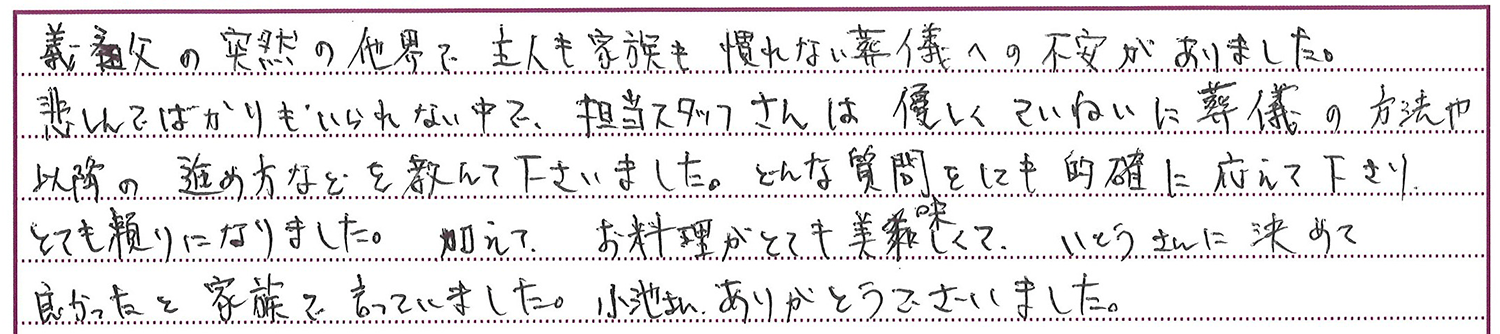 義祖父の突然の他界で主人も家族も慣れない葬儀への不安がありました。
悲しんでばかりもいられない中で、担当スタッフさんは優しくていねいに葬儀の方法や
以降の進め方などを教えて下さいました。どんな質問をしても的確に応えて下さり、
とても頼りになりました。加えて、お料理がとても美味しくて、いとうさんに決めて
良かったと家族で言っていました。小池さん、ありがとうございました。